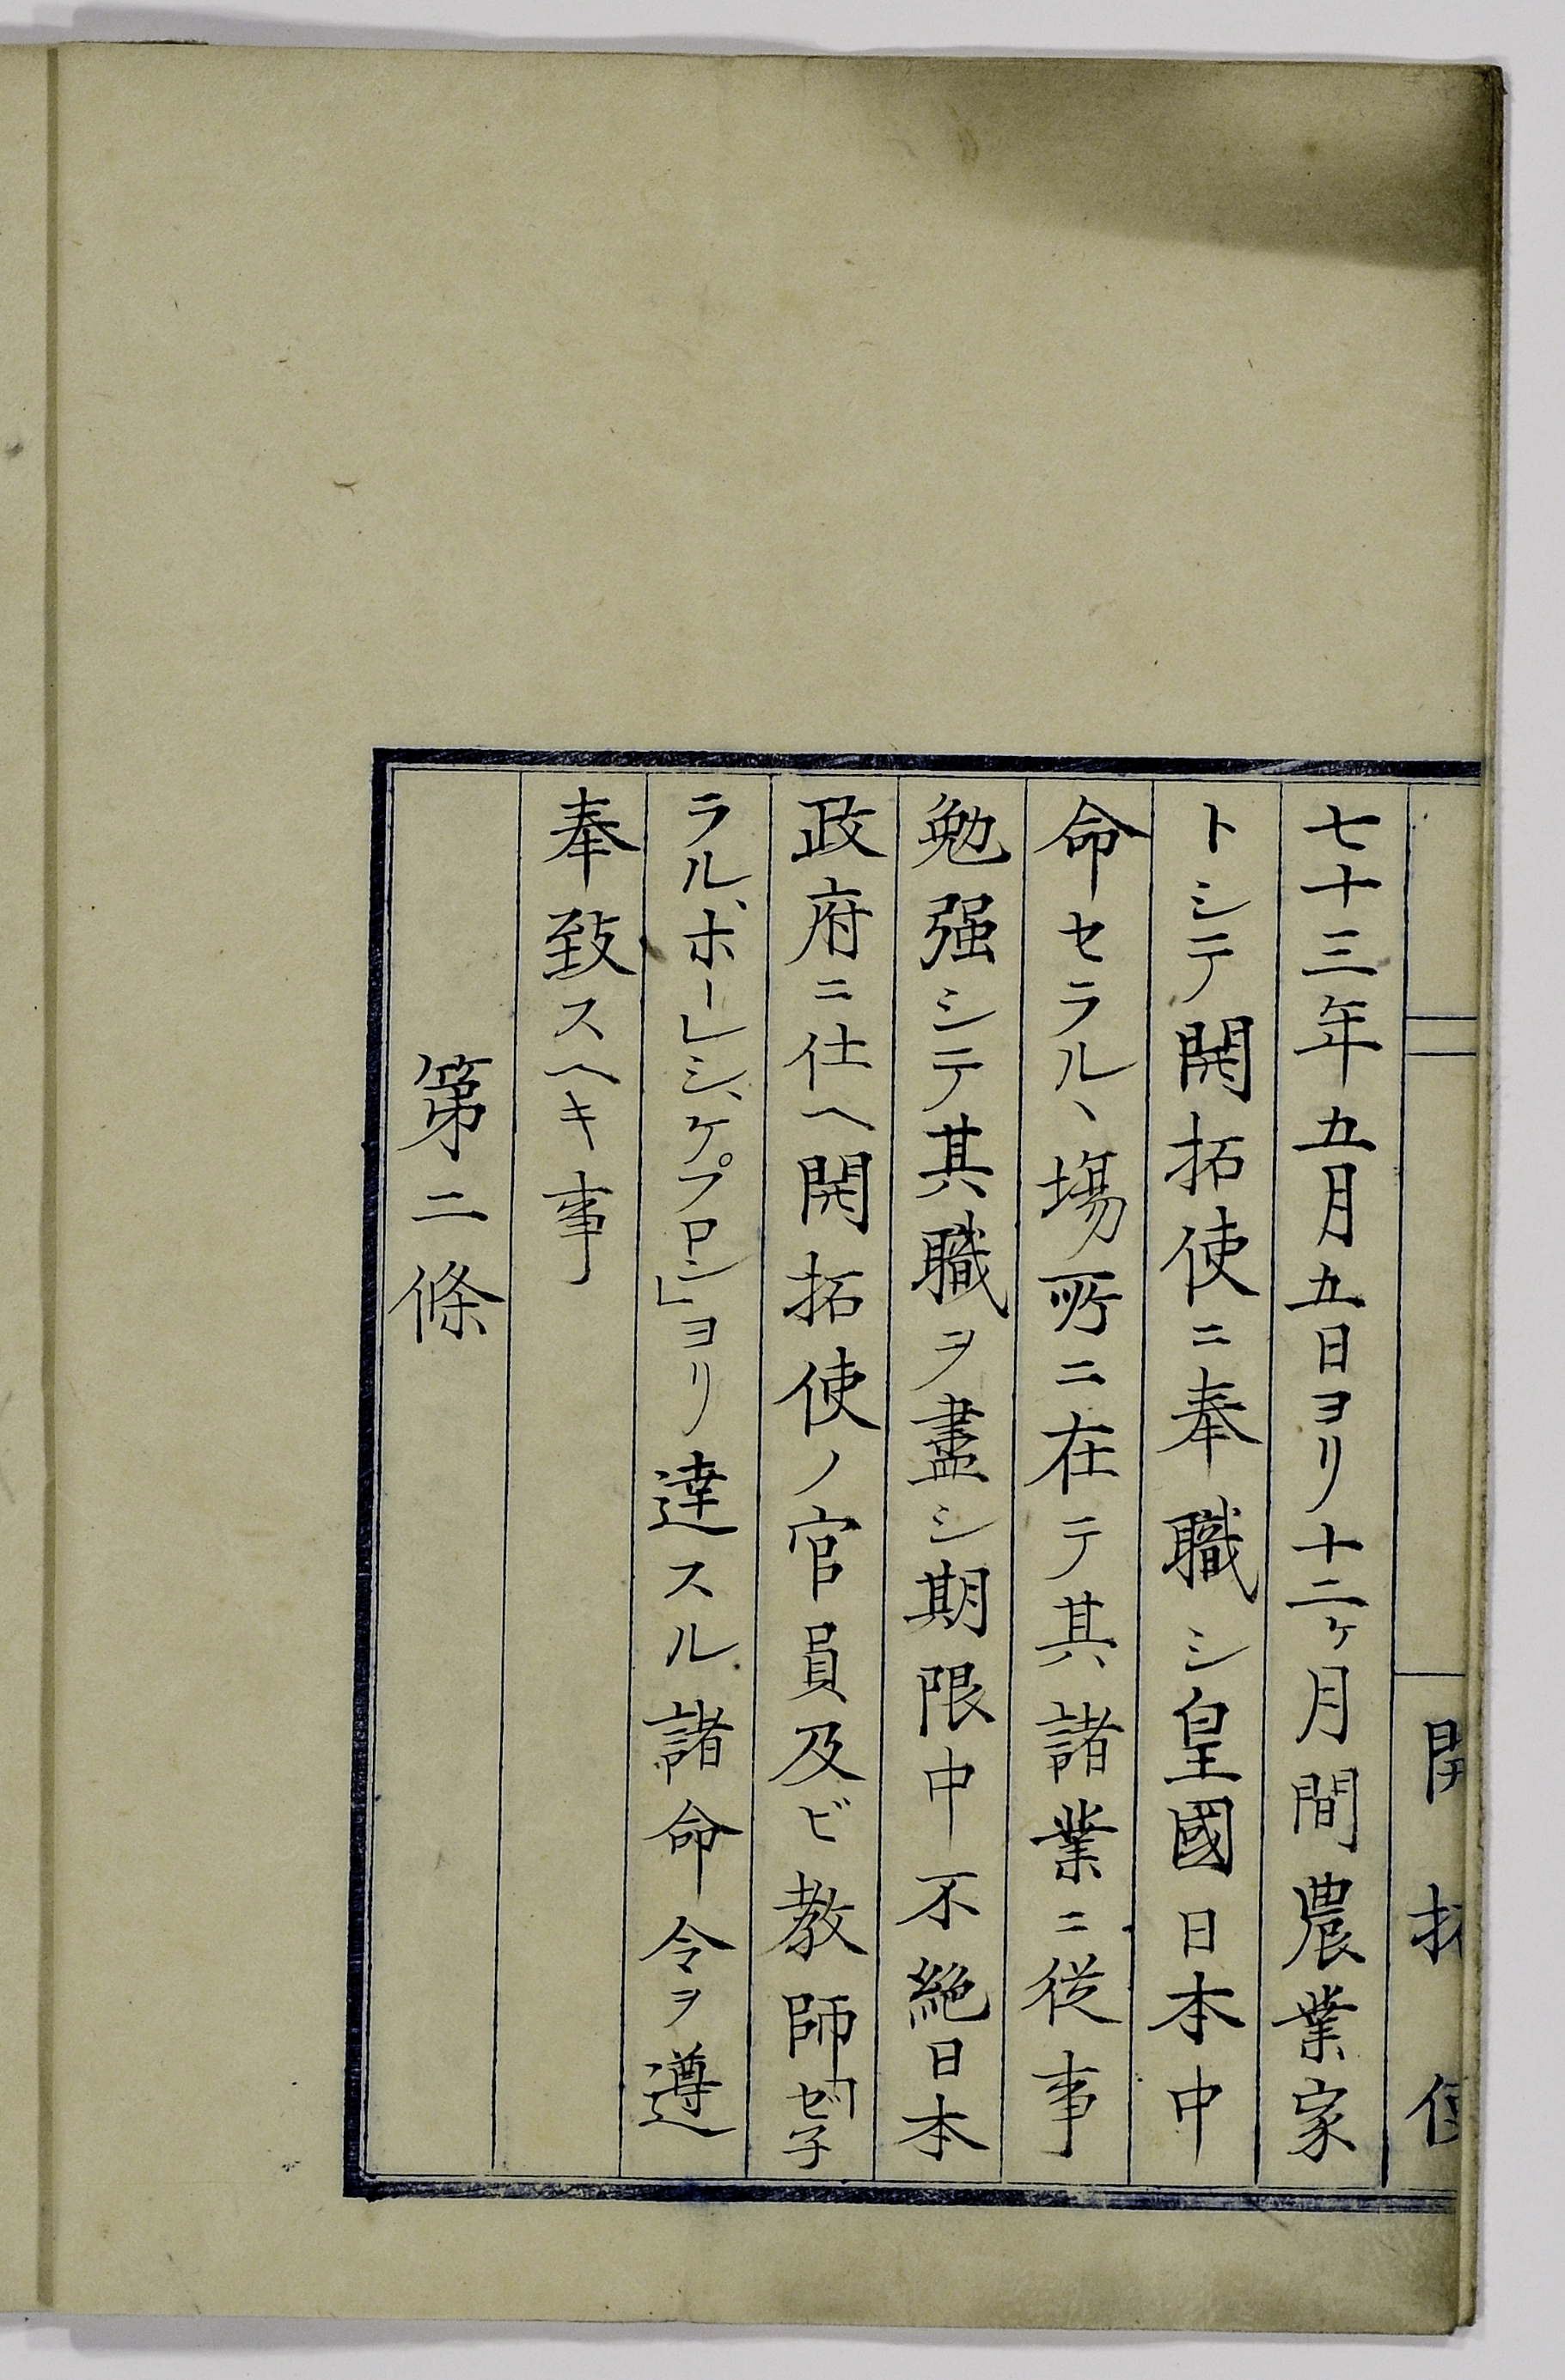 開拓使
七十三年五月五日ヨリ十二ケ月間農業家
トシテ開拓使ニ奉職シ皇國日本中
命セラル丶塲所ニ在テ其諸業ニ従事
勉强シテ其職ヲ盡シ期限中不絶日本
政府ニ仕ヘ開拓使ノ官員及ビ教師「ゼ子
ラル、ホーレシ、ケプロン」ヨリ達スル諸命令ヲ遵
奉致スヘキ事
第二條